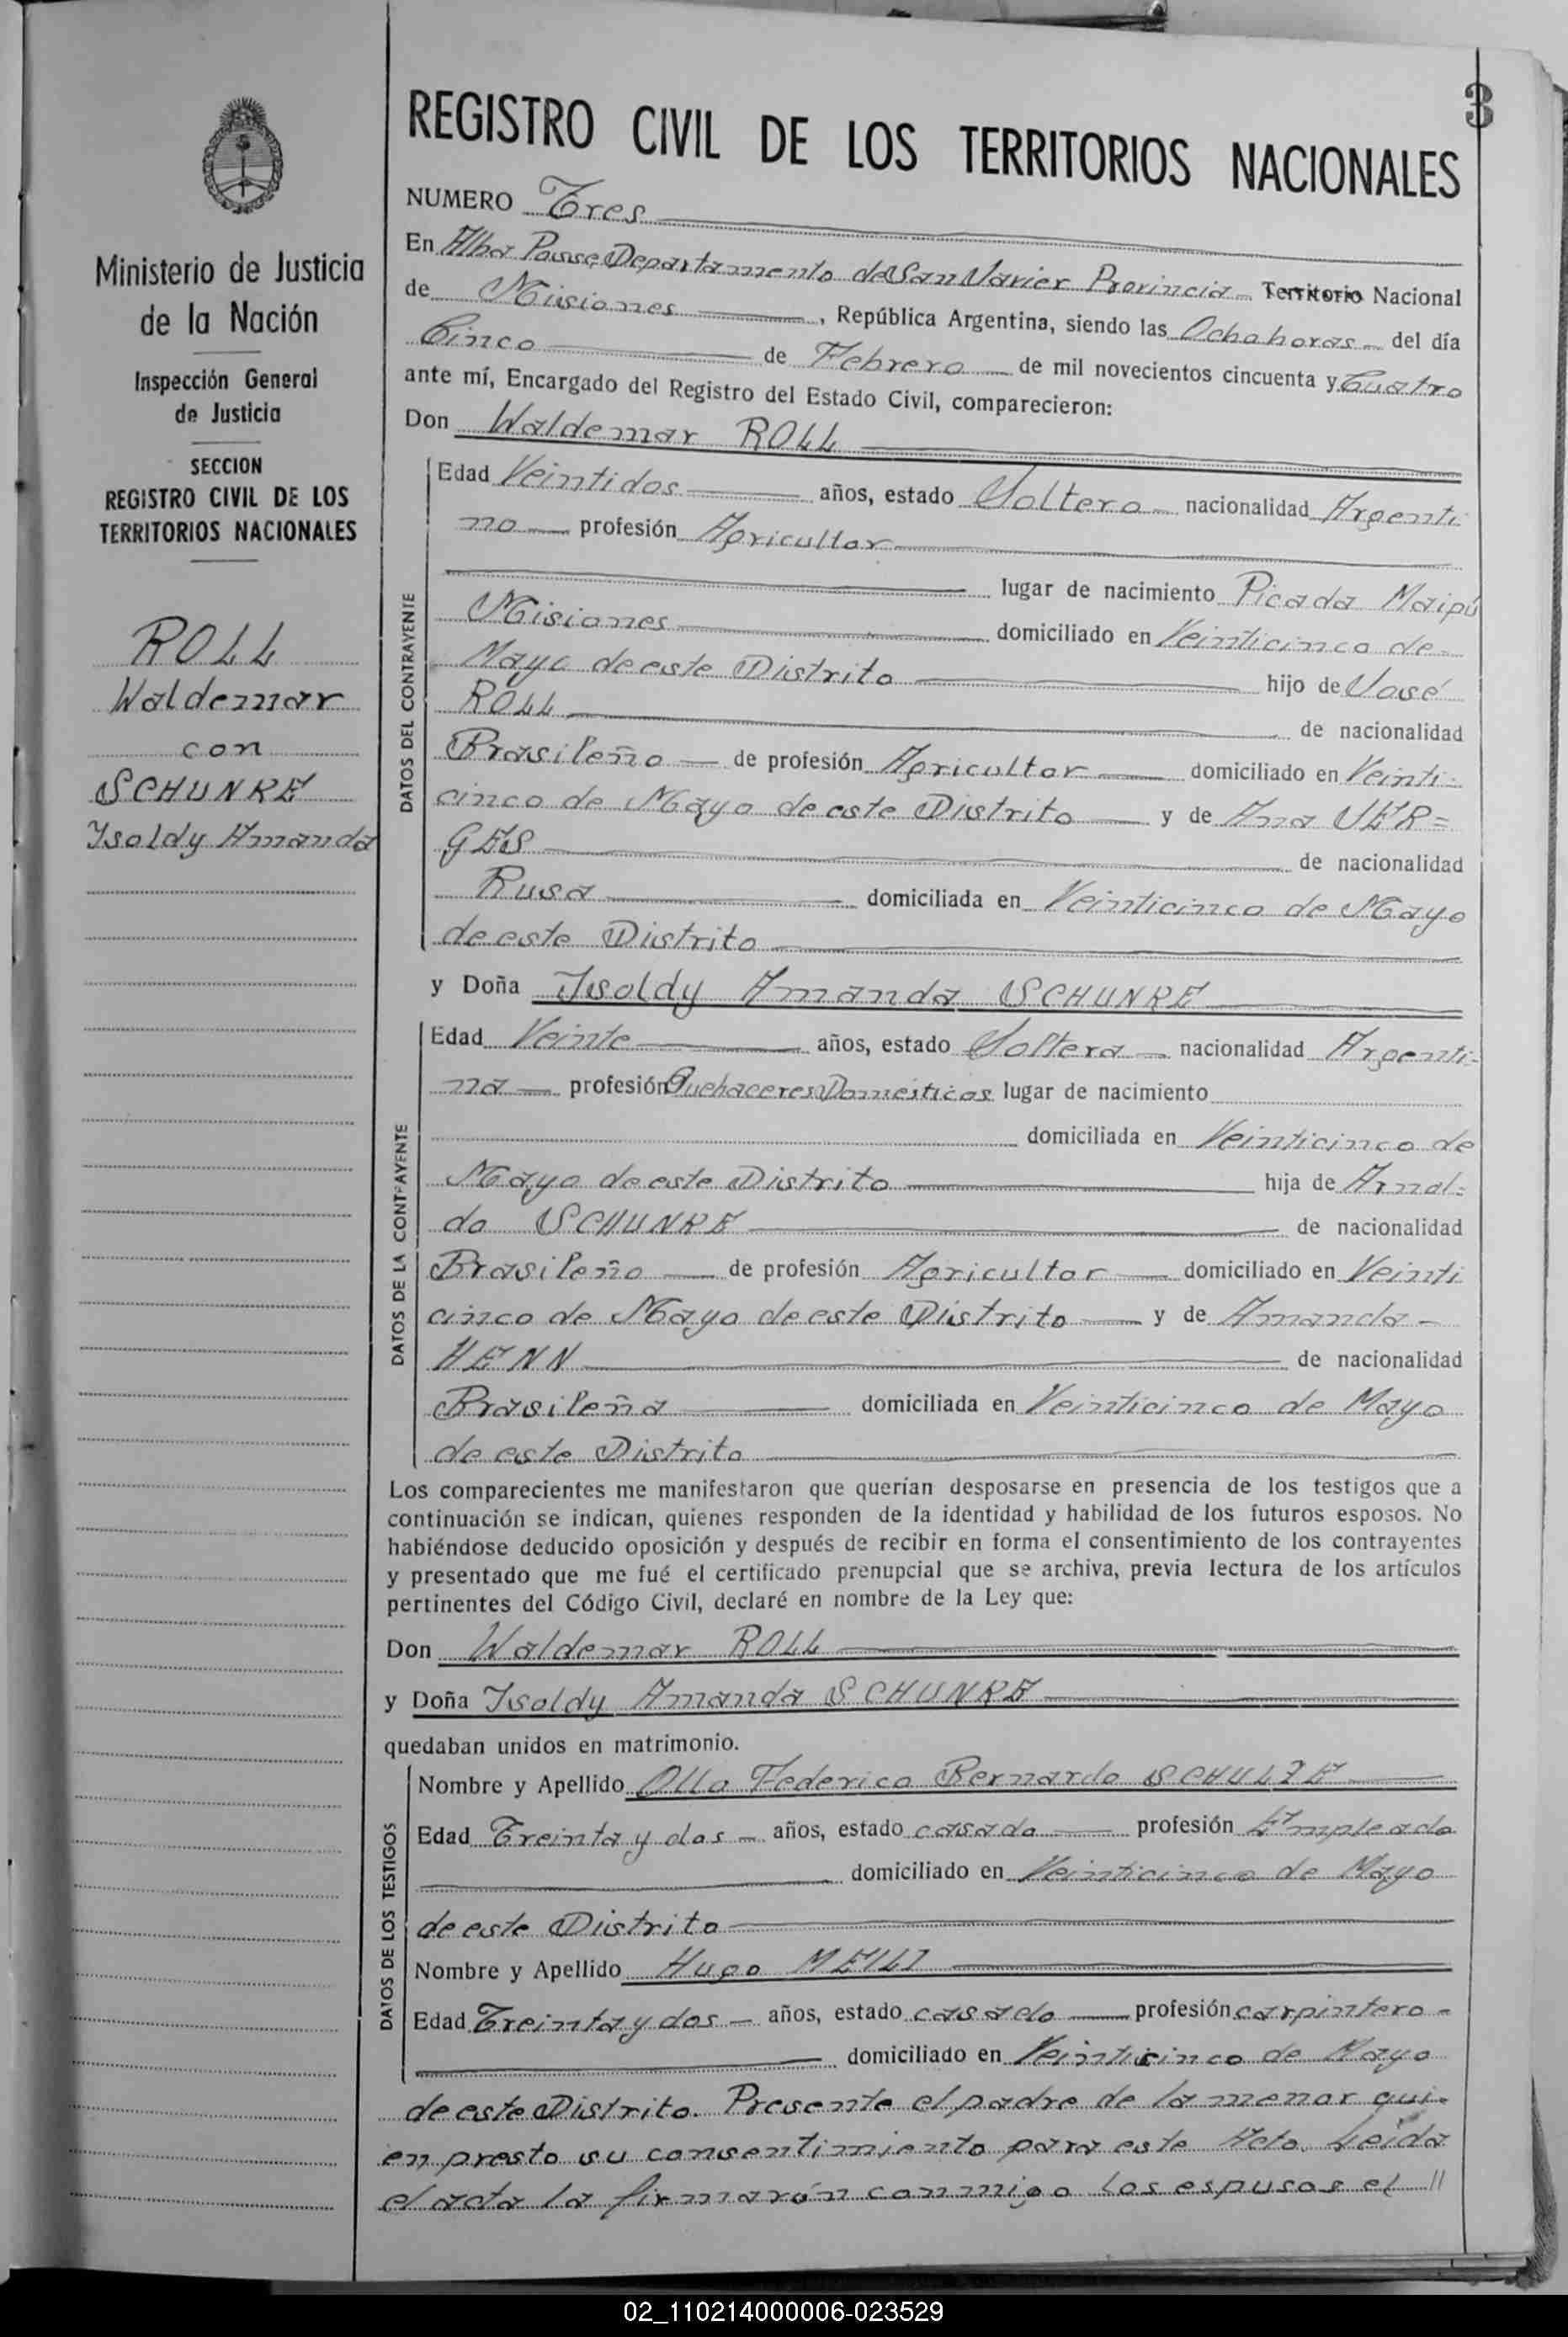 3
Ministerio de Justicia
de la Nación
Inspección General
de Justicia
SECCION
REGISTRO CIVIL DE LOS
TERRITORIOS NACIONALES
ROLL
Waldemar
con
SCHUNKE
Isoldy Amanda
REGISTRO CIVIL DE LOS TERRITORIOS NACIONALES
NUMERO Tres
En Alba Posse, Departamento de San Javier Provincia Territorio Nacional
de Misiones, República Argentina, siendo las Ocho horas del día
Cinco de Febrero de mil novecientos cincuenta y Cuatro
ante mí, Encargado del Registro del Estado Civil, comparecieron:
Don Waldemar ROLL
DATOS DEL CONTRAYENTE
Edad Veintidos años, estado Soltero nacionalidad Argenti
no profesión Agricultor
lugar de nacimiento Picada Maipú
Misiones domiciliado en Veinticinco de
Mayo de este Distrito hijo de José
ROLL de nacionalidad
Brasileño de profesión Agricultor domiciliado en Veinti-
cinco de Mayo de este Distrito y de Ana JER=
GES de nacionalidad
Rusa domiciliada en Veinticinco de Mayo
de este Distrito
y Doña Isoldy Amanda SCHUNKE
DATOS DE LA CONTRAYENTE
Edad Veinte años, estado Soltera nacionalidad Argenti-
na profesión Quehaceres Domésticos lugar de nacimiento
domiciliada en Veinticinco de
Mayo de este Distrito hija de Arnal=
do SCHUNKE de nacionalidad
Brasileño de profesión Agricultor domiciliado en Veinti
cinco de Mayo de este Distrito y de Amanda
HENN de nacionalidad
Brasileña domiciliada en Veinticinco de Mayo
de este Distrito
Los comparecientes me manifestaron que querían desposarse en presencia de los testigos que a
continuación se indican, quienes responden de la identidad y habilidad de los futuros esposos. No
habiéndose deducido oposición y después de recibir en forma el consentimiento de los contrayentes
y presentado que me fué el certificado prenupcial que se archiva, previa lectura de los artículos
pertinentes del Código Civil, declaré en nombre de la Ley que:
Don Waldemar ROLL
y Doña Isoldy Amanda SCHUNKE
quedaban unidos en matrimonio.
DATOS DE LOS TESTIGOS
Nombre y Apellido Otto Federico Bernardo SCHULZE
Edad Treinta y dos años, estado casado profesión Empleado
domiciliado en Veinticinco de Mayo
de este Distrito
Nombre y Apellido Hugo MEILI
Edad Treinta y dos años, estado casado profesión carpintero
domiciliado en Veinticinco de Mayo
de este Distrito. Presente el padre de la menor qui-
en presto su consentimiento para este Acto. Leida
el acta la firmarón conmigo los espusos el //
02_110214000006-023529